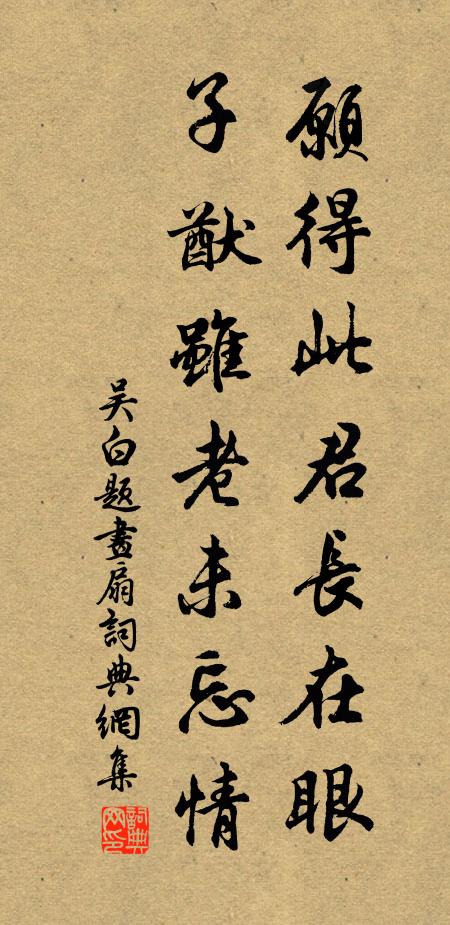 願得此君長在眼
子猷雖老未忘情
吴白題畫扇詞典網集
詞典網印